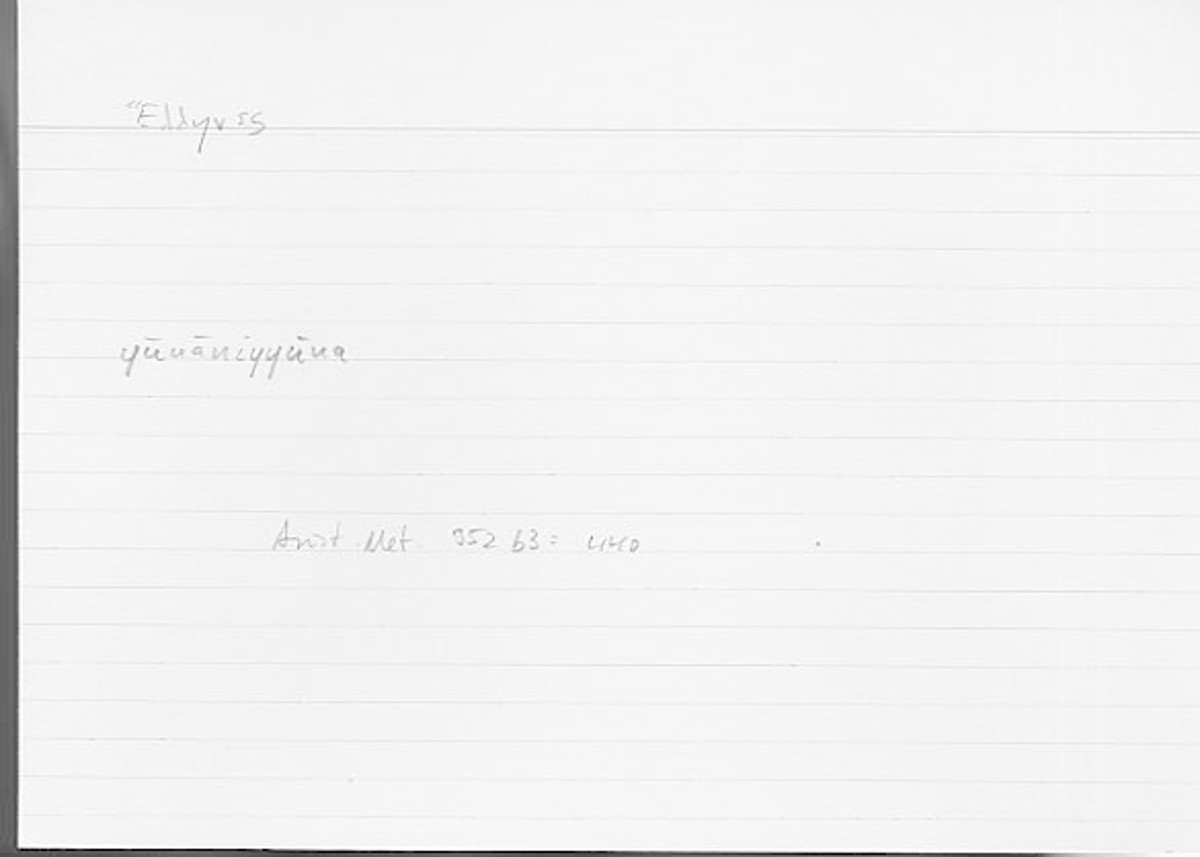 Ἕλληνες
yūnānīyyūna
Arist. Met. 352 b3 = 440